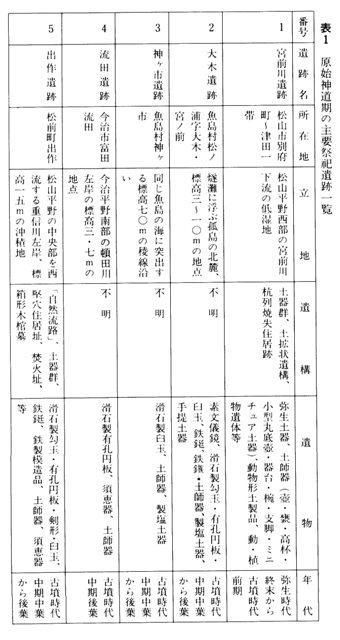 表1 原始神道期の主要祭祀遺跡一覧
番号
遺跡名
所在地
立地
遺構
遺物
年代
1
宮前川遺跡
松山市別府
町〜津田一
帯
松山平野西部の宮前川
下流の低湿地
土器群、土拡状遺構、
杭列焼失住居跡
弥生土器、土師器(壺・甕・高杯・
小型丸底壺・器台・椀・支脚・ミニ
チュア土器)、動物形土製品、動・植
物遺体等
弥生時代
終末から
古墳時代
前期
2
大木遺跡
魚島村松ノ
浦字大木・
宮ノ前
燧灘に浮ぶ孤島の北麓、
標高三〜一〇mの地点
不明
素文儀鏡、滑石製勾玉・有孔円板・
臼玉、鉄鋌、鉄鏃・土師器、製塩土器、
手捏土器
古墳時代
中期中葉
から後葉
3
神ヶ市遺跡
魚島村神ヶ
市
同じ魚島の海に突出す
る標高七〇mの稜線沿
不明
滑石製臼玉、土師器、製塩土器
古墳時代
中期中葉
から後葉
4
流田遺跡
今治市富田
流田
今治平野南部の頓田川
左岸の標高三・七mの
地点
不明
滑石製有孔円板、須恵器、土師器
古墳時代
中期後葉
5
出作遺跡
松前町出作
松山平野の中央部を西
流する重信川左岸、標
高一五mの沖積地
「自然流路」、土器群、
竪穴住居址、焚火址、
箱形木棺墓
滑石製勾玉・有孔円板・剣形・臼玉、
鉄鋌、鉄製模造品、土師器、須恵器
等
古墳時代
中期中葉
から後葉